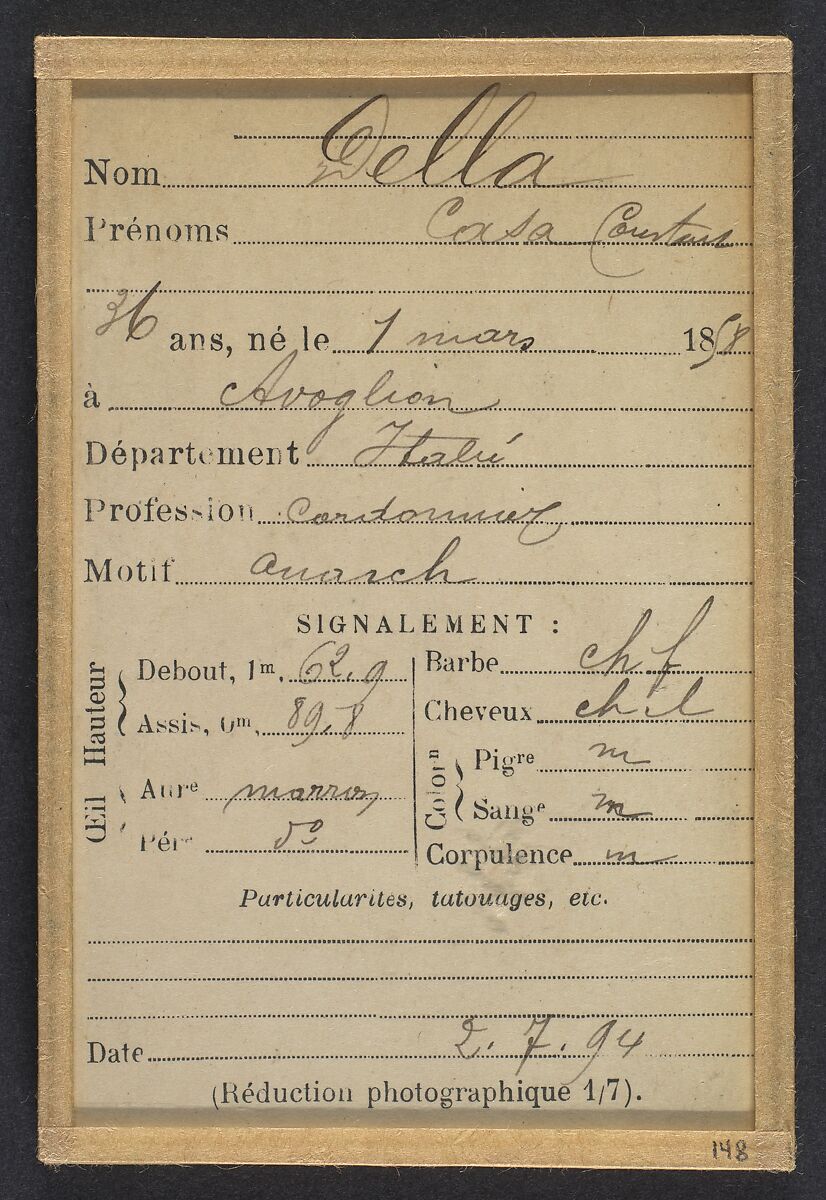 Nom Della
Prénoms Casa Constant
36 ans, né le 1 mars 1858
à Avoglion
Département Italie
Profession Cordonnier
Motif anarch
SIGNALEMENT :
Hauteur
Debout, 1m, 62.9
Assis, 0m, 89.8
Œil
Aure marron
Pére do
Barbe ch f
Cheveux ch.l
Colorn
Pigre m
Sange m
Corpulence m
Particularités, tatouages, etc.
Date 2.7.94
(Réduction photographique 1/7).
148